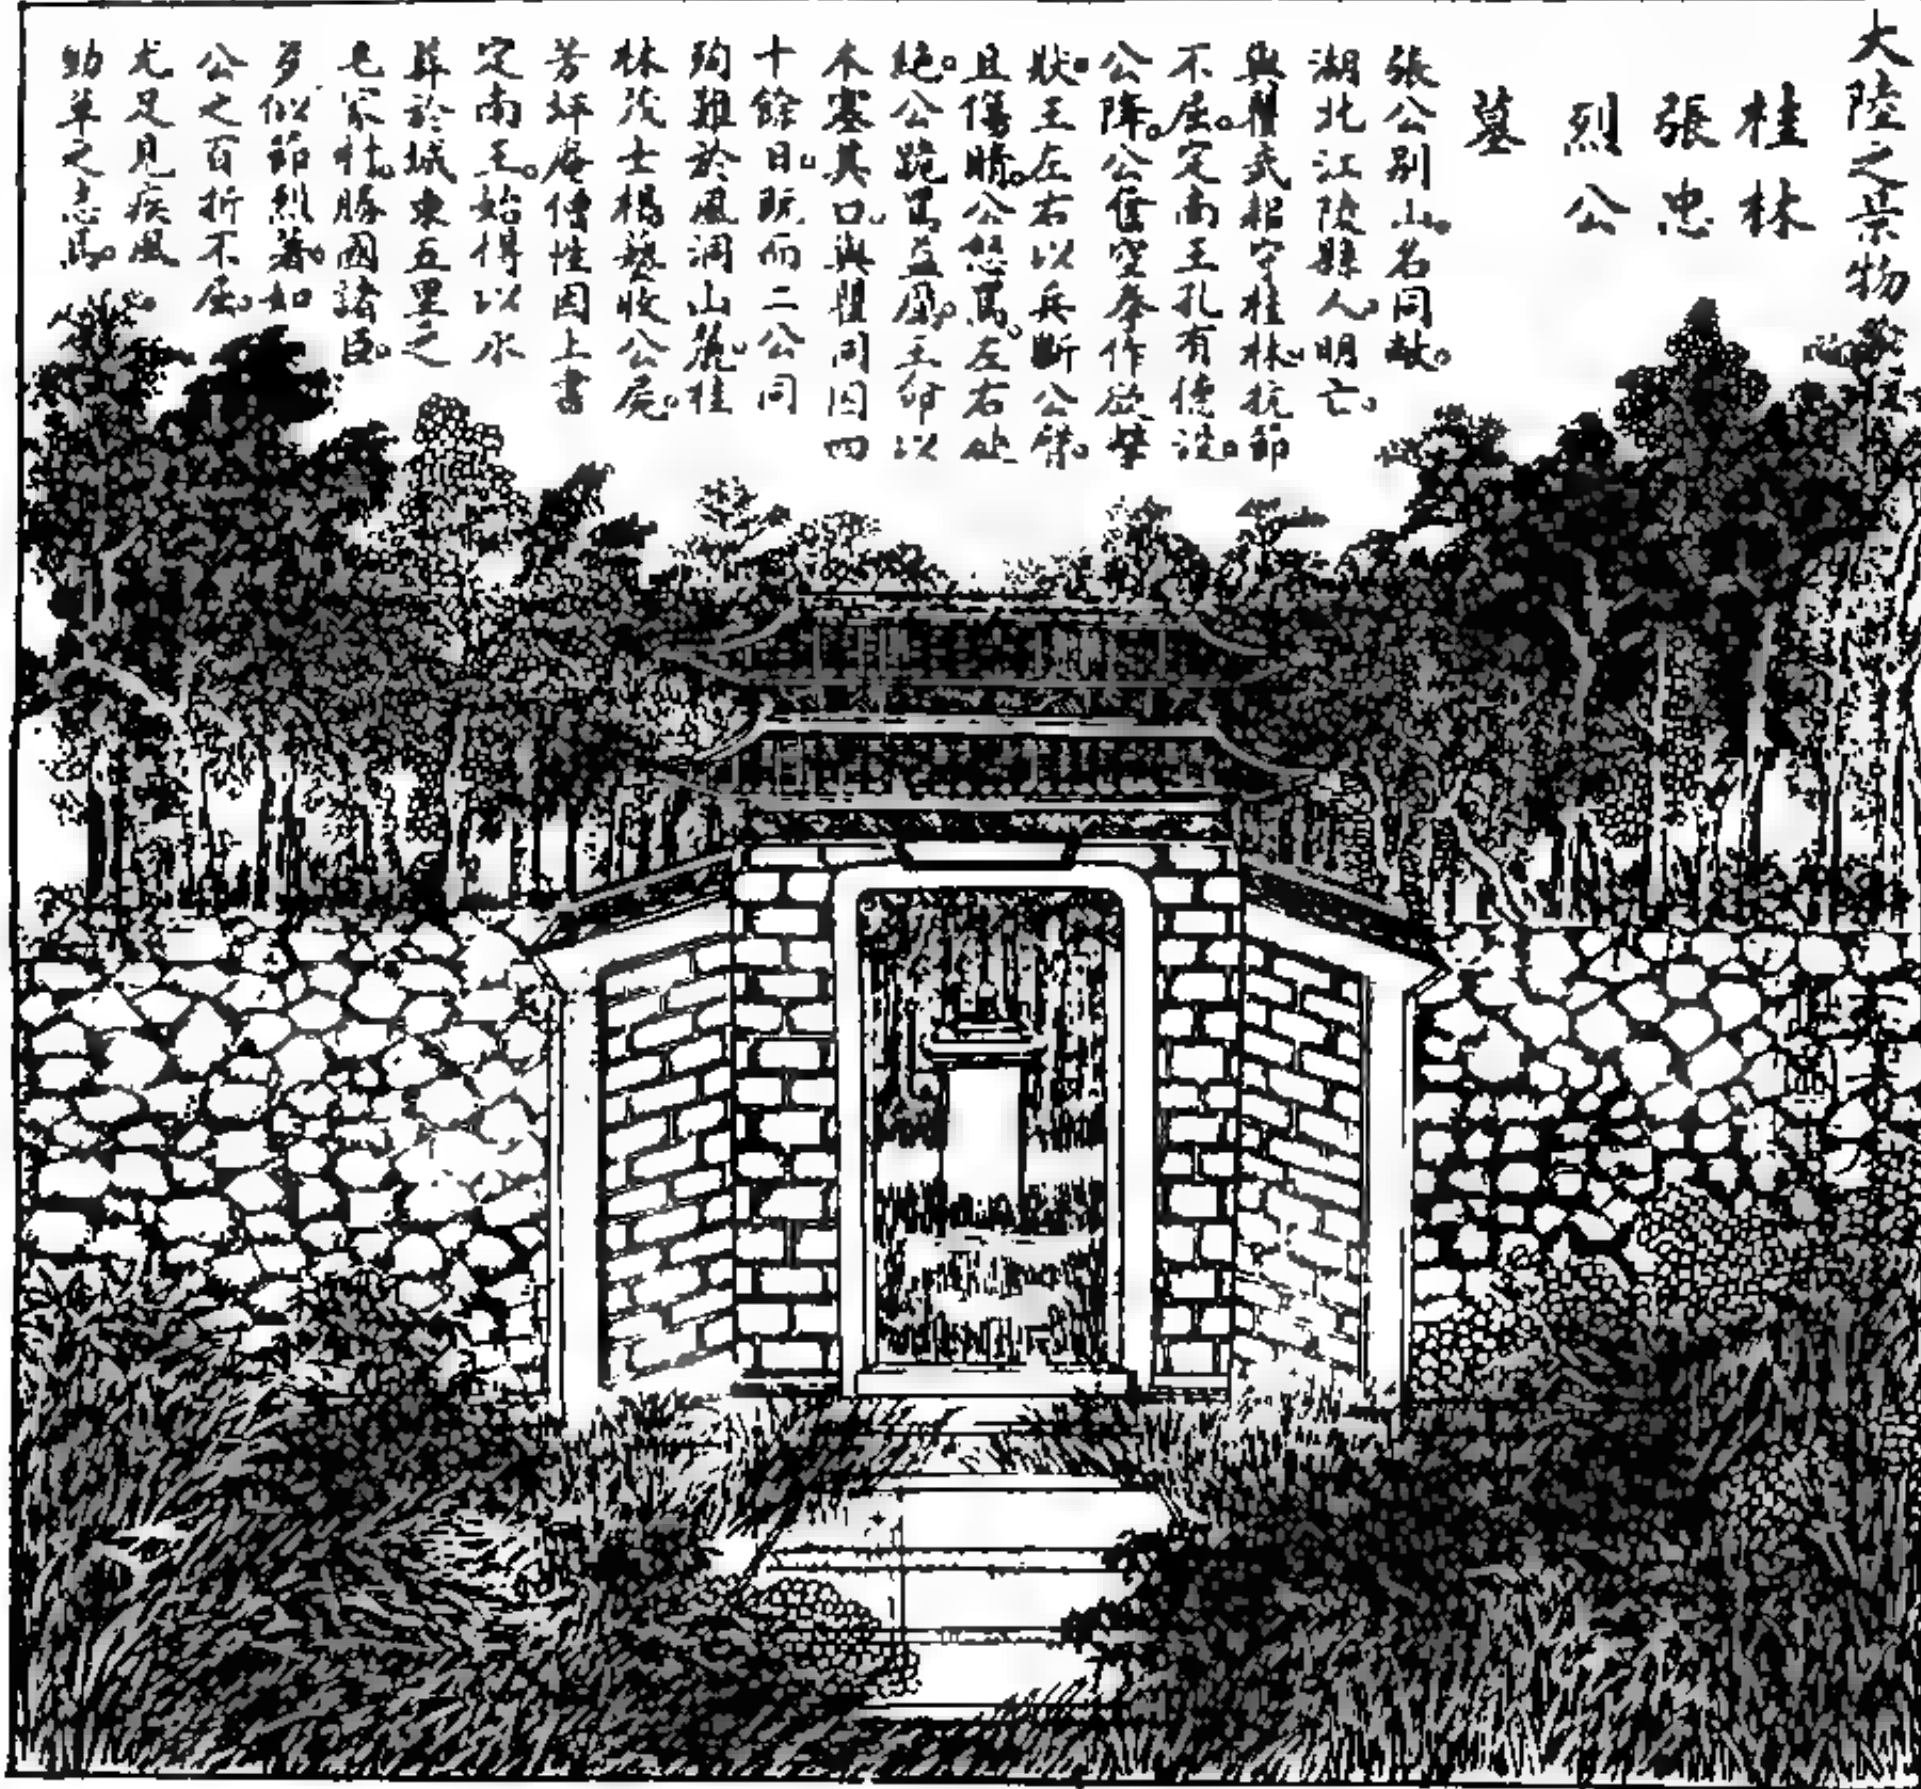 大陸之景物
桂林
張忠
烈公
墓
張公別山。名同敞。
湖北江陵縣人。明亡。
與瞿式耜守桂林。抗節
不屈。定南王孔有德說。
公降。公奮空拳作欲擊
狀。王左右以兵斷公臂。
且傷睛。公怒罵。左右叱
絕。公跪罵益厲。王命以
木塞其口。與瞿同囚四
十餘日。既而二公同
殉難於風洞山麓。桂
林茂士楊藝收公屍。
芳坪庵僧性因上書
定南王。始得以
葬於城東五里之
毛家村。勝國諸臣。
多以節烈著。如
公之百折不屈。
尤足見疾風
勁草之志焉。